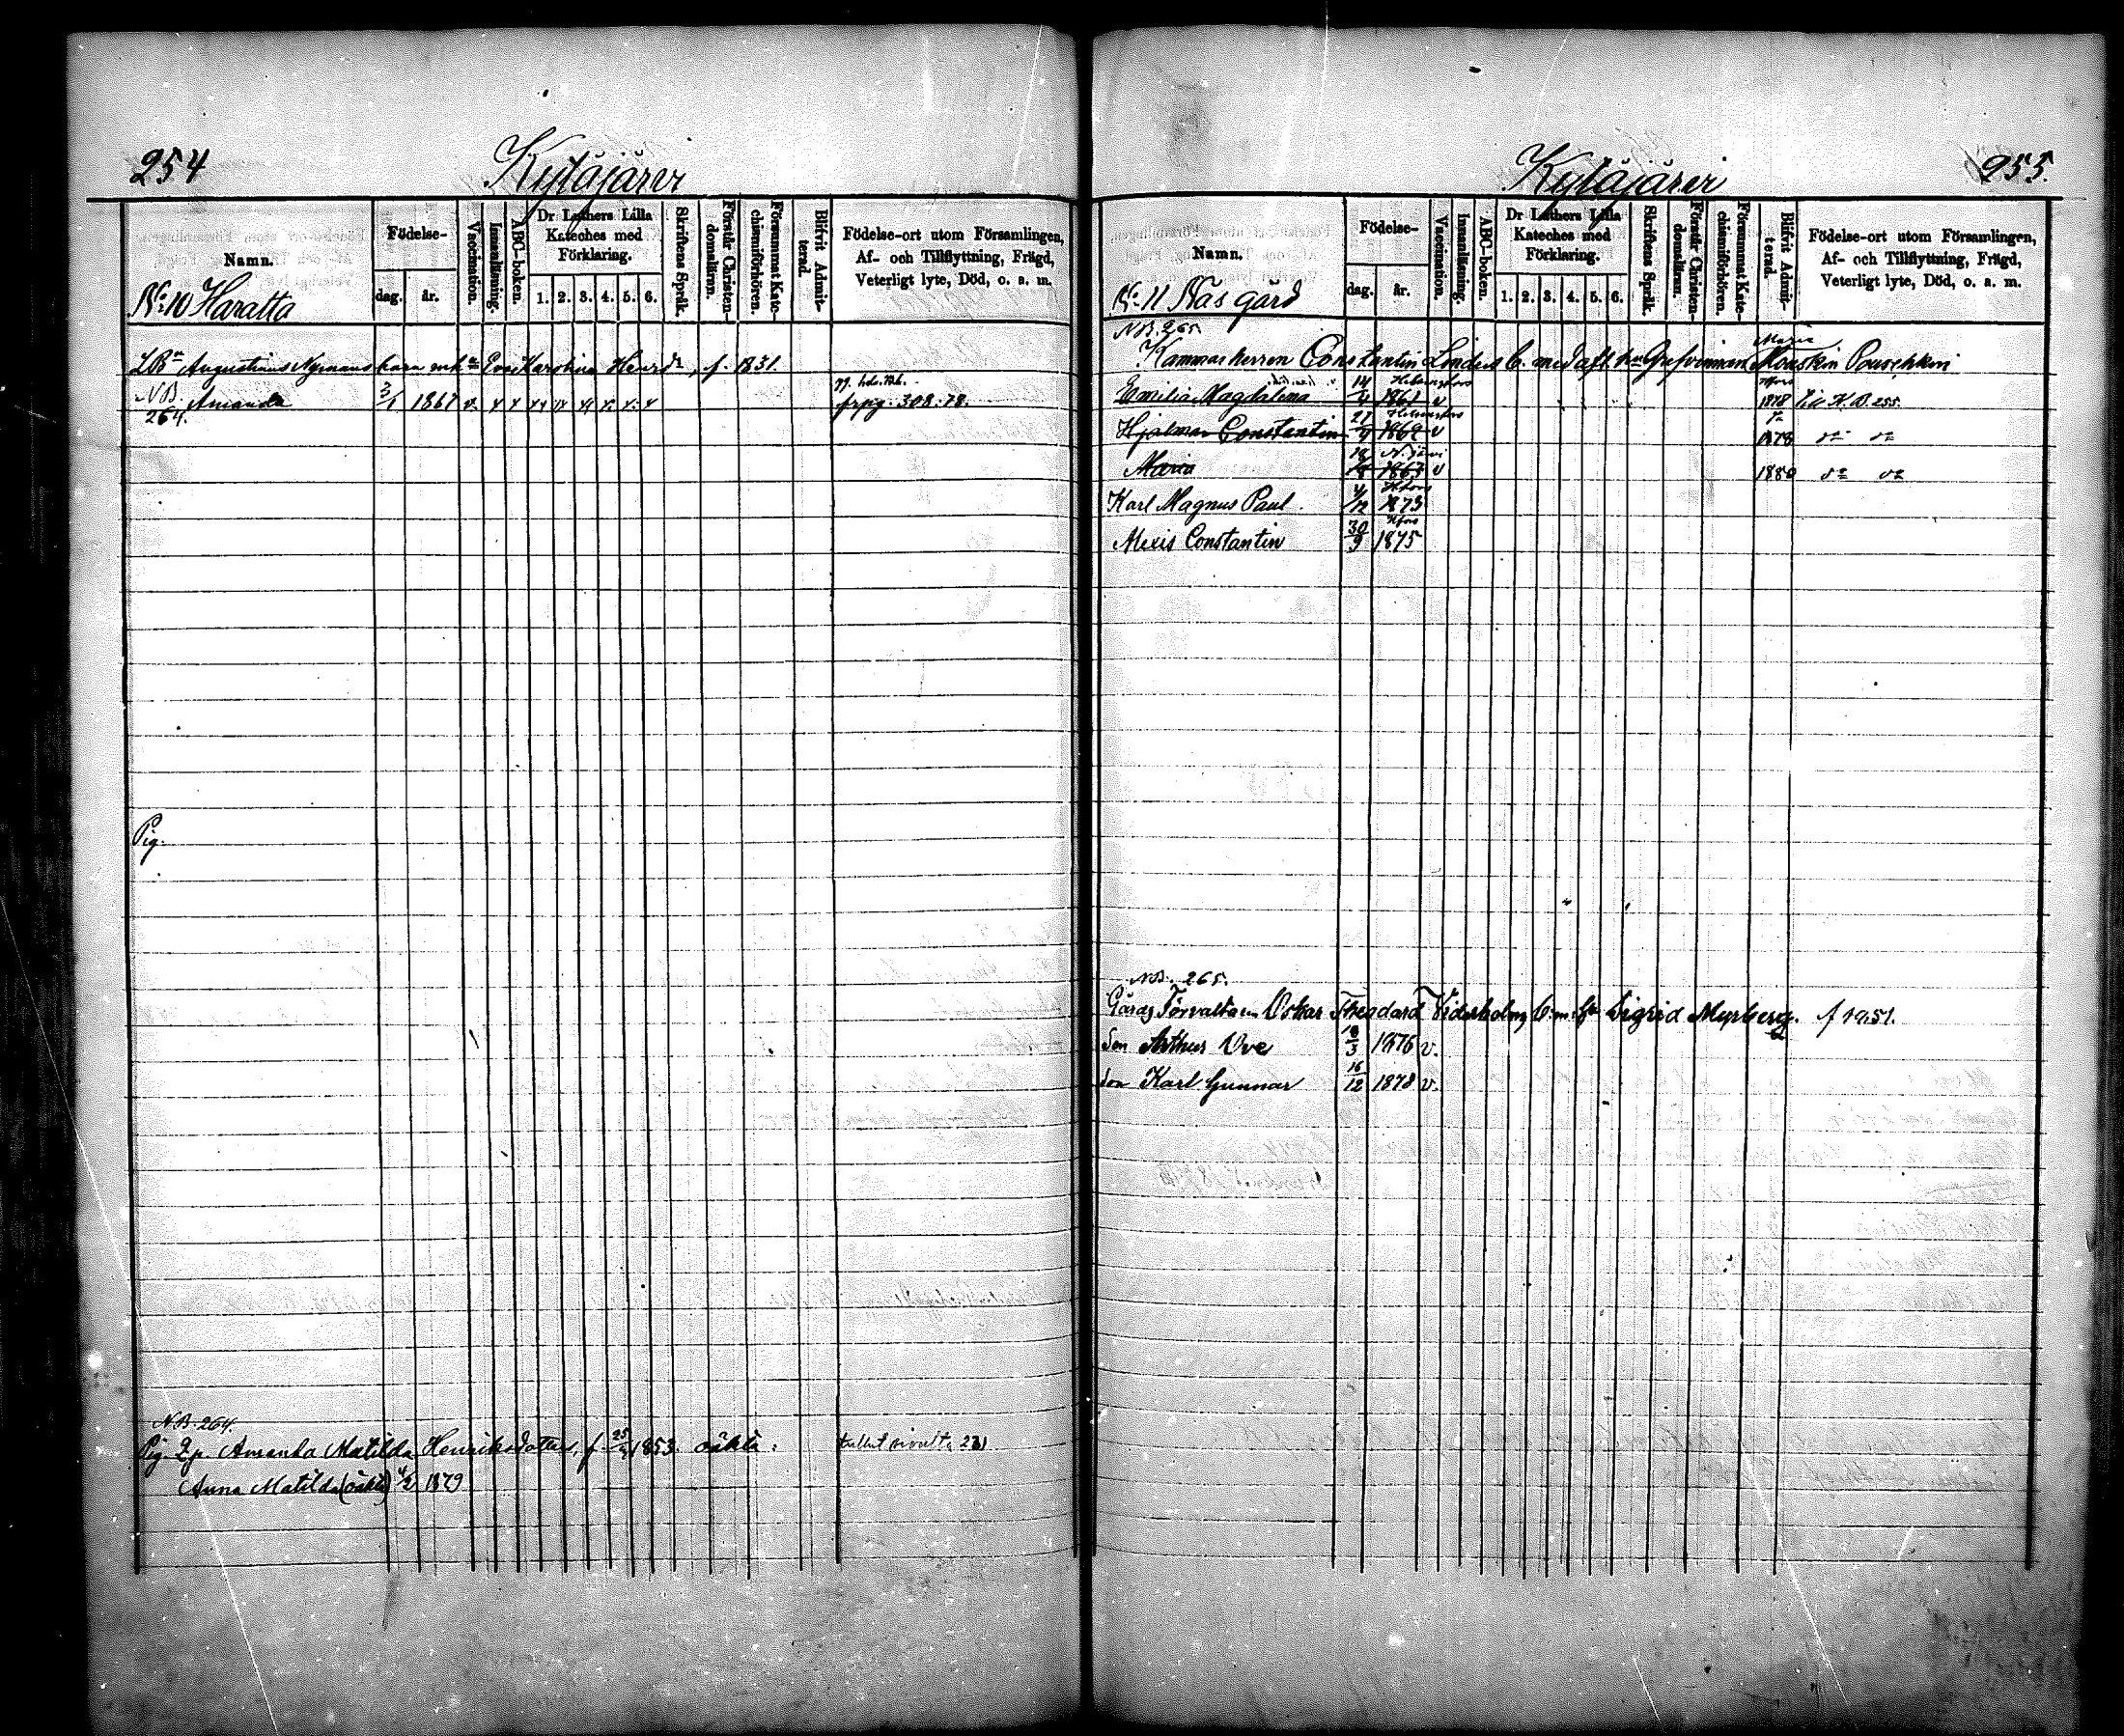 254
Kytäjärvi
Namn.
Födelse-
dag.
år.
Vaccination.
Innanläsning.
ABC-boken.
Dr Luthers Lilla
Kateches med
Förklaring.
1. 2. 3. 4. 5. 6.
Skriftens Språk.
Förstår Christen-
domsläran.
Försummat Kate-
chismiförhören.
Blifvit Admit-
terad.
Födelse-ort utom Församlingen,
Af- och Tillflyttning, Frägd,
Veterligt lyte, Död, o. a. m.
No 10 Haratta
Augustinus Nymans barn Eva Karolina f. 1831.
NB. Amanda 3/1 1867 v. frpg. 308. 78.
264.
Pig.
NB. 264.
Pig. Amanda Matilda Henriksdotter, f. 1853. oäkta:
Anna Matilda (oäkta) 4/2 1879
Kytäjärvi
255.
Namn.
Födelse-
dag.
år.
Vaccination.
Innanläsning.
ABC-boken.
Dr Luthers Lilla
Kateches med
Förklaring.
1. 2. 3. 4. 5. 6.
Skriftens Språk.
Förstår Christen-
domsläran.
Försummat Kate-
chismiförhören.
Blifvit Admit-
terad.
Födelse-ort utom Församlingen,
Af- och Tillflyttning, Frägd,
Veterligt lyte, Död, o. a. m.
No 11 Näs gård
NB. 265.
Maria
Kammarherren Constantin Linders b. med afl. hu Grefvinnan Mouskin Pouschkin
Emilia Magdalena 14/4 1861 v Helsingfors 1878 Till K. B. 255.
Hjalmar Constantin 27/9 1862 v Helsingfors 1878 do do
Maria 18/8 1863 v 1880 do do
Karl Magnus Paul. 4/12 1873 Hfors
Alexis Constantin 30/9 1875 Hfors
NB. 265.
Gårds Förvaltaren Oskar Theodard Widerholms b. m. hu Sigrid Myrberg. f 1851.
Son Arthur Ove 18/3 1876 v.
Son Karl Gunnar 16/12 1878 v.